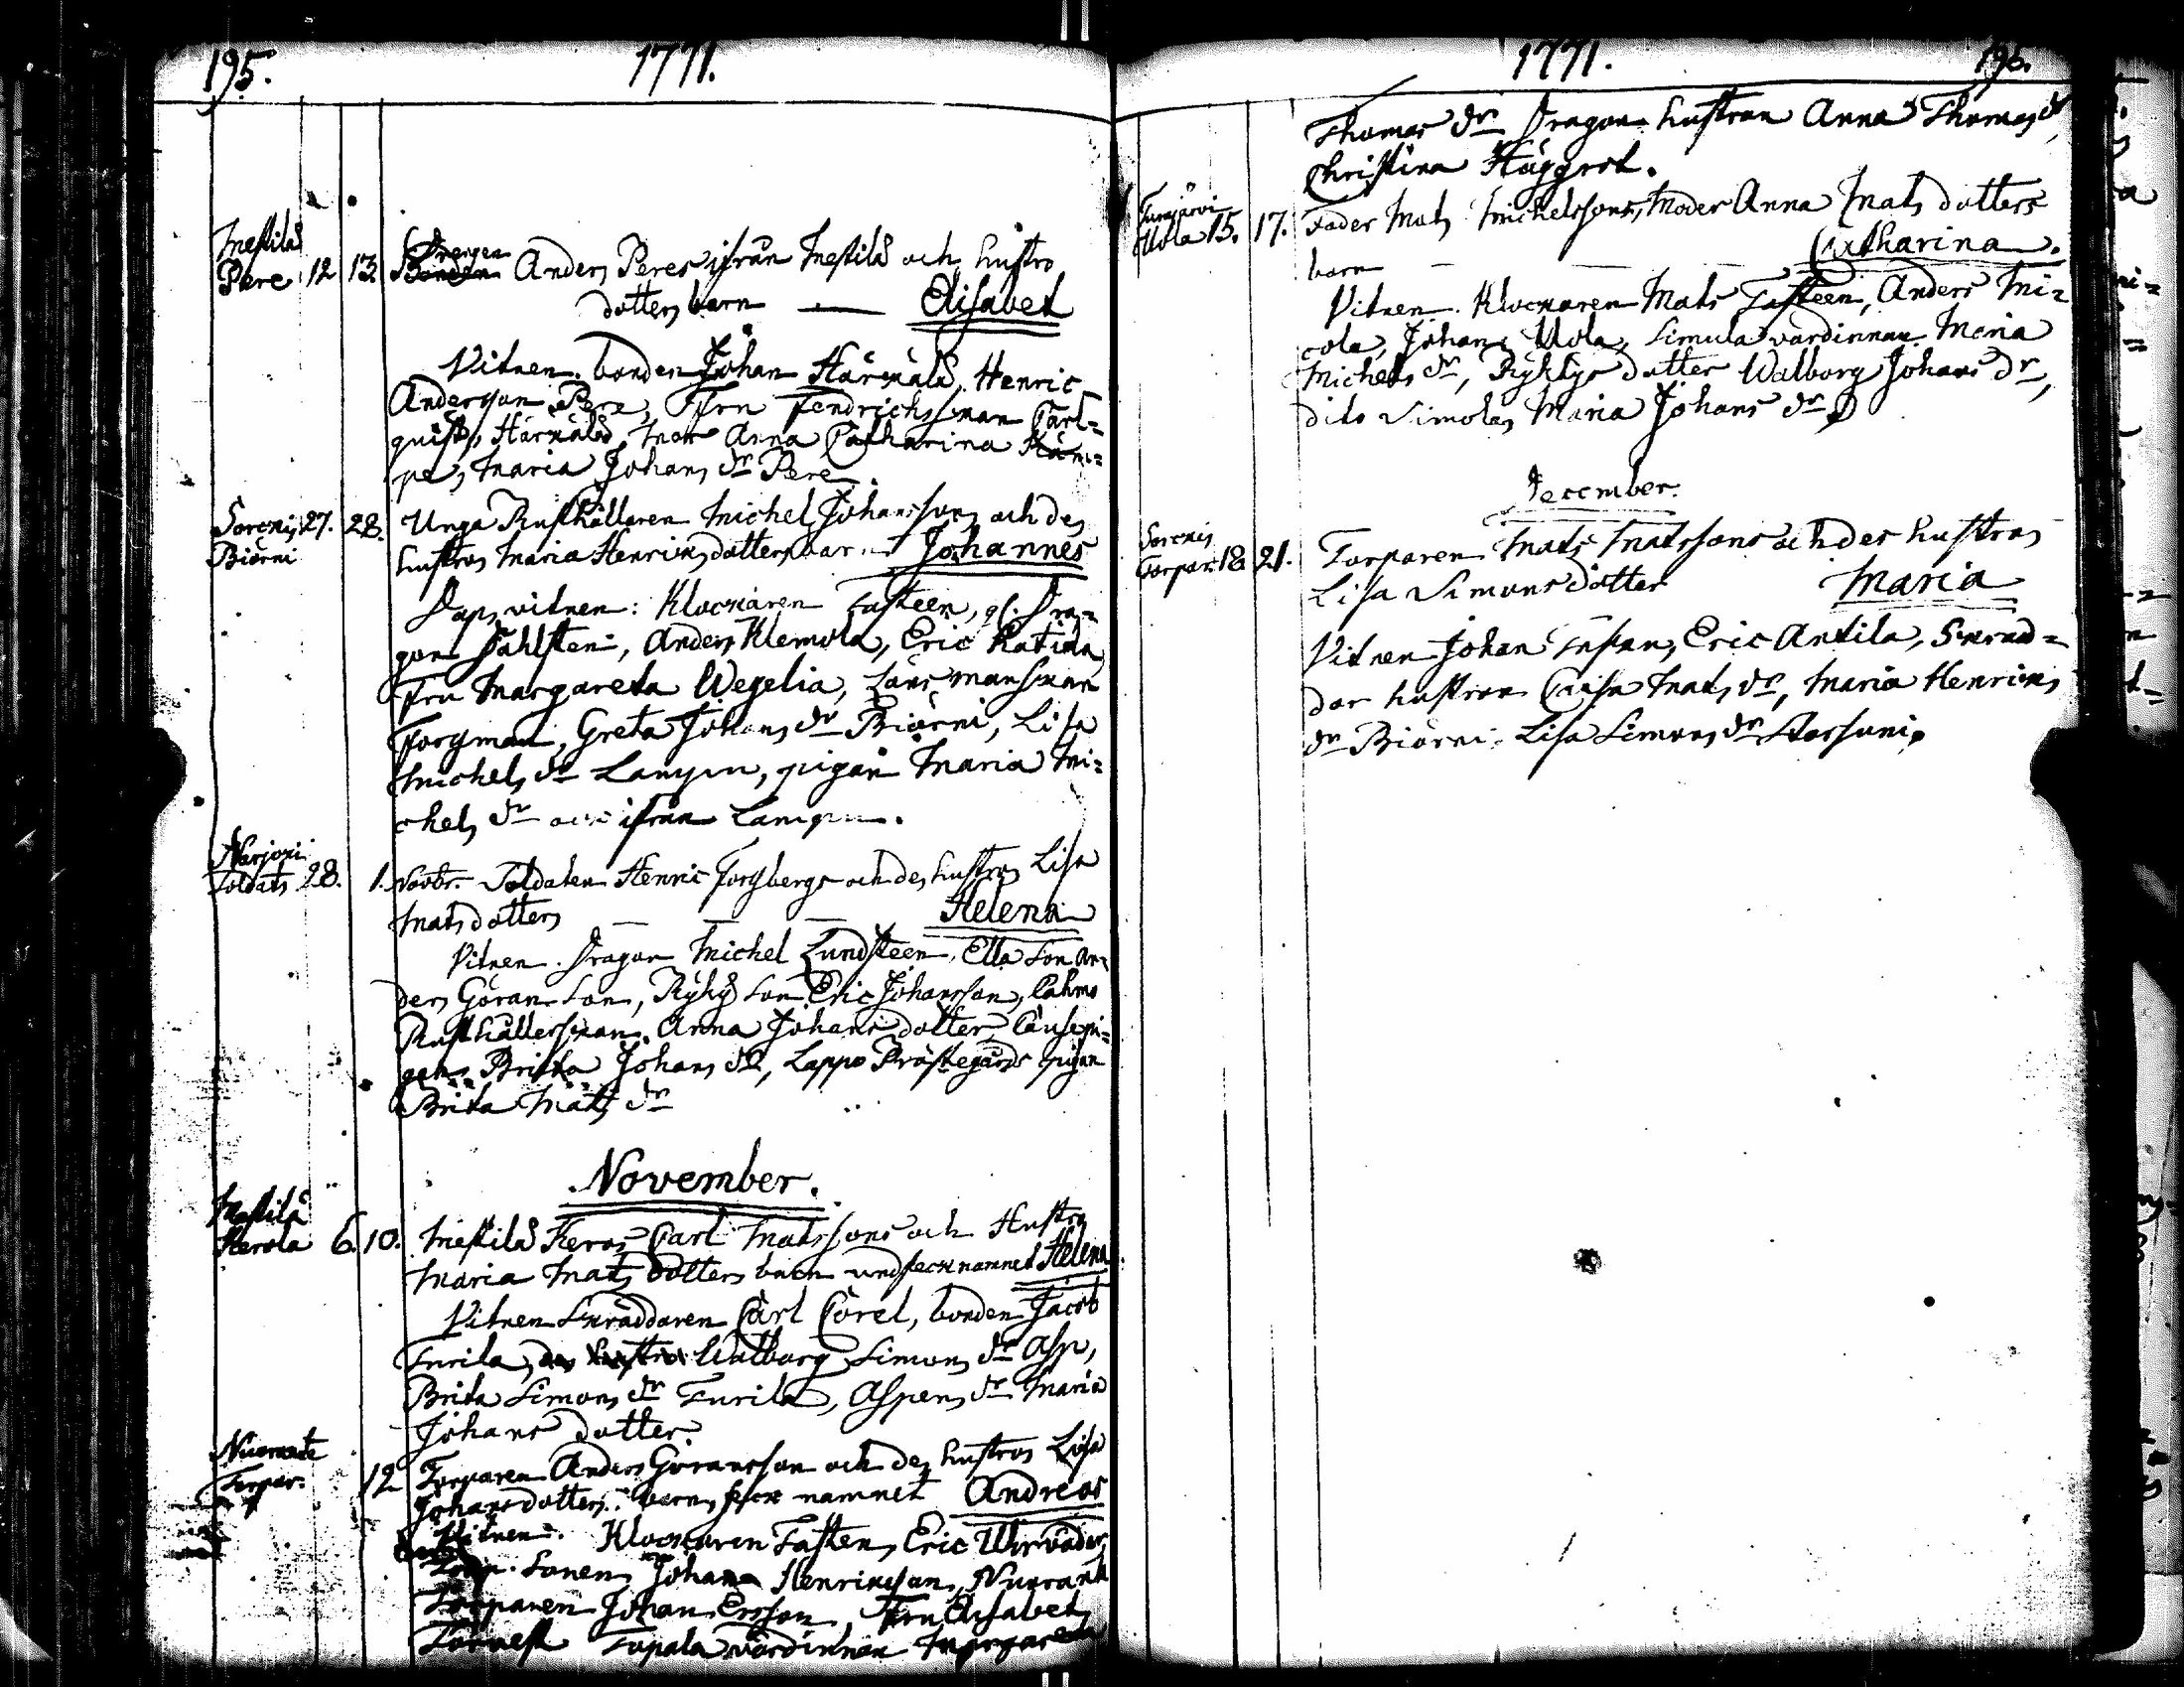 195.
1771.
Mestilä
Pere 12 13.
Drengen
Bonden Anders Peres ifrån Mestilä och hustro
dotters barn — Elisabet
Vitnen. bonden Johan Härmälä, Henric
Andersson Pere, Fru Fendrichskan Carl=
quist, Härmälä, mor Anna Catharina Käm=
pe, Maria Johans dr Pere.
Sorenis 27. 28. Unga Rusthållaren Michel Johanssons och des
Biörni
hustros Maria Henrics dotters bar. Johannes
Dops vitnen: Klockaren Tasteen, gl. Dra=
gon Dahlsten, Anders Klemola, Eric Ratida
Fru Margareta Wegelia, Länsmanskan
Forsman, Greta Johans dr Biörni, Lisa
Michels dr Lampu, pigan Maria Mi=
chels dr ifrån Lampu.
Narjoki
Soldats 28. 1. Novbr. Soldaten Henric Forsbergs och des hustros Lisa
Matsdotters — — — Helena
Vitnen. Dragon Michel Lundsteen, Ella son An=
ders Göransson, Rÿkÿ son Eric Johansson, Cahmo
Rusthållerskan Anna Johans dotter, pi=
gan Britta Johans dr, Lappo Prästegårds pigan
Brita Mats dr
November.
Mestilä
Kerola 6. 10. Mestilä Keros Carl Matssons och Hustro
Maria Mats dotters barn undfeck namnet Helena
Vitnen Skräddaren Carl Corel, bonden Jacob
Turila, des hustro Walborg Simons dr Asp,
Brita Simons dr Turila, Aspens dr Maria
Johans dotter.
Torpar. 12 Torparen Anders Göransson och des hustros Lisa
Johansdotters barn, feck namnet Andreas
Vitnen. Klockaren Tasten, Eric
Sonen Johan Henricsson,
Torparen Johan Ersson, Fru Elisabet
Topala värdinnan Margareta
1771.
196.
Thomas dr Dragon hustron Anna Thomas dr
Christina Häggrot.
15. 17. Fader Mats Michelssons, Moder Anna Mats dotters
barn — — — Catharina.
Vitnen. Klockaren Mats Tasteen, Anders Mi=
cola, Johan Uola, Simula värdinnan Maria
Michels dr, Rÿkÿs dotter Walborg Johans dr,
dito Simolas Maria Johans dr
December.
Sorenis
Torpar. 18 21. Torparen Mats Matssons och des hustros
Lisa Simons dotter Maria
Vitnen Johan Eric Antila, Skräd=
dar hustron Caisa Mats dr, Maria Henrics
dr Biörni, Lisa Simons dr